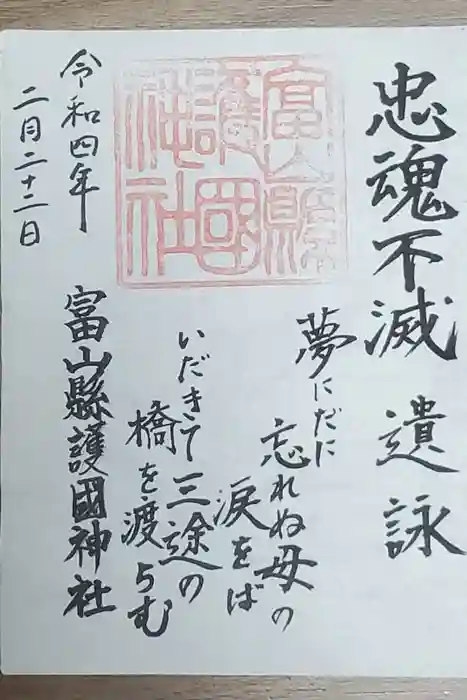 忠魂不滅 遺詠
夢にだに
忘れぬ母の
涙をば
いだきて三途の
橋を渡らむ
富山縣護國神社
令和四年
二月二十二日
富山縣
護國
神社